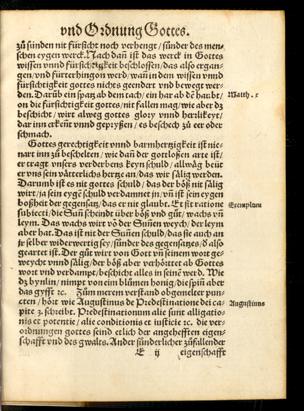 vnd Ordnung Gottes.
zů sünden nit fürsicht noch verhengt / sünder des men-
schen eygen werck. Nach dañ ist das werck in Gottes
wissen vnnd fürsichtigkeit beschlossen / das also ergan-
gen / vnd fürterhin gon werd / wañ in dem wissen vnnd
fürsichtigkeit gottes nichts geendert vnd bewegt wer-
den. Darüb ein spatz ab dem tach / ein har ab dē haubt /
Matth. x
on die fürsichtigkeit gottes / nit fallen mag / wie aber dz
beschicht / wirt alweg gottes glory vnnd herlikeyt /
dar inn erkent vnnd gepryßen / es beschech zů eer oder
schmach.
Gottes gerechtigkeit vnnd barmhertzigkeit ist nie-
nart inn zů beschelten / wie dañ der gottloßen arte ist /
er tragt vnsers verderbens keyn schuld / allwäg beüt
er vns sein vätterlichs hertze an / das wir sälig werden.
Darumb ist es nit gottes schuld / das der böß nit sälig
wirt / ja sein eygē schuld verdamnet in / vñ ist sein eygen
boßheit der gegensatz / das er nit glaubt. Et sit ratione
Exemplum
subiecti / die Sun scheindt über böß vnd gůt / wachs vñ
leym. Das wachs wirt vō der Suñen weych / der leym
aber hart. Das ist nit der Suñen schuld / das sie auch an
jr selber widerwertig sey / sünder des gegensatzes / ð also
geartet ist. Der gůt wirt von Gott vñ seinem wort ge-
weycht vnnd sälig / der böß aber verhörtet ab Gottes
wort vnd verdampt / beschicht alles in seinē werd. Wie
dz bynlin / nimpt von ein blůmen honig / die spiñ aber
das gyfft ꝛc. Zům merern verstand obgemelter pun-
cten / hört wie Augustinus de Predestinatione dei ca-
Augustinus
pite 3. schreibt. Predestinationum alie sunt alligatio-
nis et potentie / alie conditionis et iusticie ꝛc. die ver-
ordnungen gottes seind etlich der angehefften eigen-
schafft vnd des gwalts. Ander sünderlicher zůfallender
E ij eigenschafft